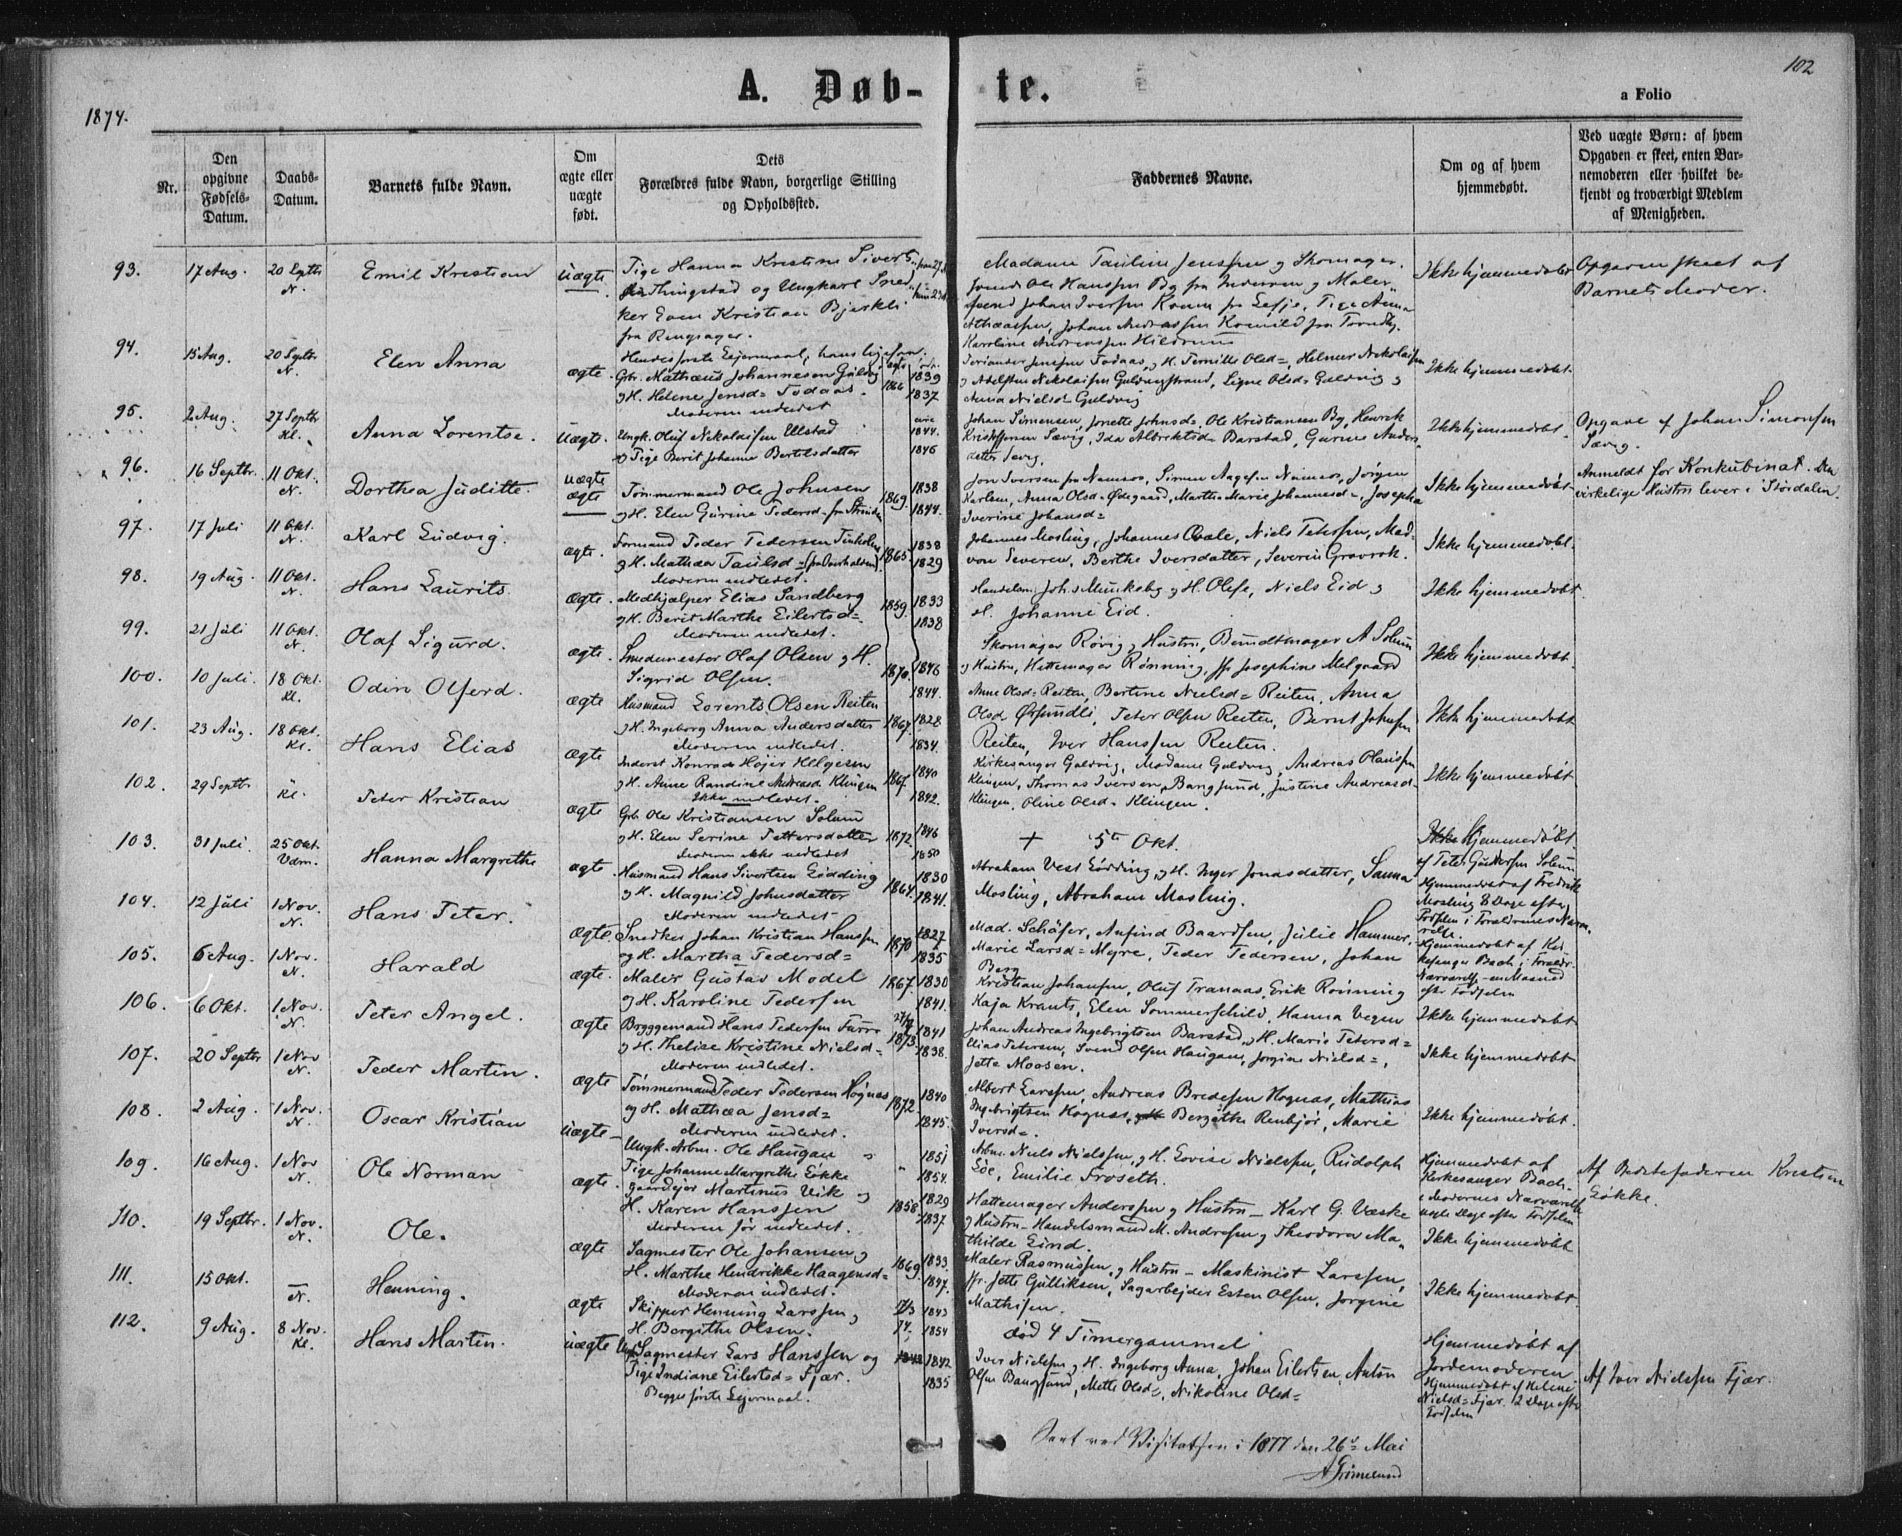 102
A. Døb-te.
a Folio
1874.
Nr.
Den opgivne Fødsels-Datum.
Daabs-Datum.
Barnets fulde Navn.
Om ægte eller uægte født.
Dets Forældres fulde Navn, borgerlige Stilling og Opholdssted.
Faddernes Navne.
Om og af hvem hjemmedøbt.
Ved uægte Børn: af hvem Opgaven er skeet, enten Barnemoderen eller hvilket bekjendt og troværdigt Medlem af Menigheden.
93. 17 Aug. 20 Septbr N. Emil Kristian uægte Pige Hanna Kristine Siverts Thingstad og Ungkarl Snedker Even Kristian Bjerkli fra Ringsager. Madame Pauline Jenssen Ikke hjemmedøbt Opgaven skeet af Barnets Moder.
94. 15 Aug. 20 Septbr. N. Elen Anna ægte. Gbr. Mathæus Johannesen Guldvig og H. Helene Jensd= Todaas. Moderen indledet 1866 1839 1837 Anna Nielsd. Guldvig Ikke hjemmedøbt.
95. 2 Aug. 27 Septbr Kl. Anna Lorentse. Uægte. Ungk. Oluf Nikolaisen Ulstad og Pige Berit Johanna Bertelsdatter 1844. 1846 Johan Simensen, Ole Kristiansen By, Henrik Ikke hjemmedøbt. Opgave af Johan Simonsen Sævig.
96. 16 Septbr. 11 Okt. N. Dorthea Juditte. uægte ægte Tømmermand Ole Johnsen og H. Elen Gurine Pedersd= 1869. 1838 1844. Jon Iversen fra Namsos, Anna Olsd= Ødegaard, Martha Marie Johannesd=, Josepha Iverine Johansd= Ikke hjemmedøbt. Anmeldt for Konkubinat. Den virkelige Hustru lever i Stördalen.
97. 17 Juli 11 Okt. N. Karl Ludvig. ægte. Formand Peder Pedersen og H. Mathea Paulsd= Moderen indledet. 1865 1838 1829 Johannes Mosling, Johannes Qvale, Niels Petersen, Mad. von Severen, Berthe Iversdatter, Severin Gravrok. Ikke hjemmedøbt.
98. 19 Aug. 11 Okt. N. Hans Laurits ægte. Medhjælper Elias Sandberg og H. Berit Marthe Eilertsd= Moderen indledet. 1859 1833 1838 Handelsm. Johs Munkeby og H. Olefe, Niels Eid og H. Johanne Eid. Ikke hjemmedøbt.
99. 21 Juli 11 Okt. N. Olaf Sigurd. ægte. Smedemester Olaf Olsen og H. Sigrid Olsen. 1870. 1846 1844. Skomager Røvig og Hustru, Bundtmager A Solum og Hustru, Hattemager Rønning, Jfr Josephine Melgaard Ikke hjemmedøbt.
100. 10 Juli. 18 Okt. Kl. Odin Olferd. ægte Husmand Lorents Olsen Reiten og H. Ingeborg Anna Andersdatter Moderen indledet. 1867. 1828 1834. Anne Olsd= Reiten, Bertine Nielsd= Reiten, Anna Olsd. Peter Olsen Reiten, Bernt Johnsen Reiten, Iver Hanssen Reiten. Ikke hjemmedøbt
101. 23 Aug. 18 Okt. Kl. Hans Elias ægte Inderst Konrad Højer Helgesen og H. Anne Randine Andreasd. Klingen Ikke indledet. 1867. 1840 1842. Kirkesanger Guldvig, Madame Guldvig, Andreas Olaussen Klingen, Thomas Iversen, Bangsund, Justine Andreasd. Klingen, Oline Olsd= Klingen. Ikke hjemmedøbt
102. 29 Septbr Kl. Peter Kristian ægte Gbr. Ole Kristiansen Solum og H. Elen Serine Pettersdatter Moderen ikke indledet 1872. 1846 1850 + 5te Okt. Ikke Hjemmedøbt. af Peter Solum
103. 31 Juli. 25 Okt. Vdm. Hanna Margrethe ægte. Husmand Hans Sivertsen Lødding og H. Magnild Johnsdatter Moderen indledet 1864. 1830 1841. Abraham Vest Lødding, og H. Inger Jonasdatter, Sanna Mosling, Abraham Mosling. Hjemmedøbt af Fredrik Mosling 8 Dage efter Fødselen i Forældrenes Nærværelse.
104. 12 Juli 1 Nov. N. Hans Peter. ægte Snedker Johan Kristian Hanssen og H. Martha Pedersd= 1870 1827 1835 Mad. Schäfer, Anfind Baardsen, Julie Hammer, Marie Larsd= Myre, Peder Pedersen, Johan Berg Hjemmedøbt af Kirkesanger Bach i Forældr. Nærværelse en Maaned efter Fødselen
105. 6 Aug. 1 Nov. N. Harald ægte. Maler Gustav Model og H. Karoline Pedersen 1867. 1830 1841. Kristian Johansen, Oluf Tranaas, Erik Rønning Kaja Krants, Elen Sommerschild, Hanna Vegen Ikke hjemmedøbt
106. 6 Okt. 1 Nov. N. Peter Angel. ægte Bryggemand Hans Pedersen og H. Thelise Kristine Nielsd= Moderen indledet. 1873. 1841 1838. Johan Andreas Ingebrigtsen Barstad, og H. Marie Petersd= Elias Petersen, Svend Olsen Haugan, Jorgine Nielsd=, Jette Moosen. Ikke hjemmedøbt
107. 20 Septbr 1 Nov N. Peder Martin. ægte Tømmermand Peder Pedersen Høgnes og H. Mathæa Jensd= Moderen indledet. 1872. 1840 1845. Albert Larssen, Andreas Bredesen Hognas, Mathias Ingebrigtsen Hognas, Bergithe Marie Iversd=. Ikke hjemmedøbt.
108. 2 Aug. 1 Nov. N. Oscar Kristian uægte Ungk. Arbm. Ole Haugan Pige Johanne Margrethe Løkke 1851 1854. Arbm. Niels Nielssen, og H. Lovise Nielssen, Rudolph Löe, Emilie Froseth. Hjemmedøbt af Kirkesanger Bach i Moderens Nærværelse Dage efter Fødselen Af Bestefaderen Kristen Løkke.
109. 16 Aug. 1 Nov N. Ole Norman ægte. Gaardejer Martinus Vik og H. Karen Hanssen Moderen før indledet. 1858 1829 1837. Hattemager Anderssen og Hustru — Karl G. Væske og Hustru — Handelsmand M. Andresen og Theodora Mathilde Lund. Ikke hjemmedøbt
110. 19 Septbr. 1 Nov. N. Ole. ægte Sagmester Ole Johansen og H. Marthe Hendrikke Haagensd= Moderen indledet. 1869. 1833. 1847. Maler Rasmussen, og Hustru — Maskinist Larssen, Jfr. Jette Gulliksen, Sagarbejder Esten Olsen, Jorgine Mathisen. Ikke hjemmedøbt.
111. 15 Okt. — N. Henning. ægte Skipper Henning Larssen og H. Bergithe Olsen. 74. 1843 1854 død 4 Timer gammel Hjemmedøbt af Jordemoderen.
112. 9 Aug. 8 Nov. Kl. Hans Martin. uægte Sagmester Lars Hanssen og Pige Indiane Eilertsd= Fjær. Begges første Lejermaal. 1842. 1835 Iver Nielsen og H. Ingeborg Anna, Johan Eilertsen, Anton Olsen Bangsund, Mette Olsd=, Nikoline Olsd= Hjemmedøbt af Helene Nielsd= Fjær. 12 Dage efter Fødselen Af Iver Nielssen Fjær.
Seet ved Visitatsen i 1877 den 26de Mai
A Grimelund